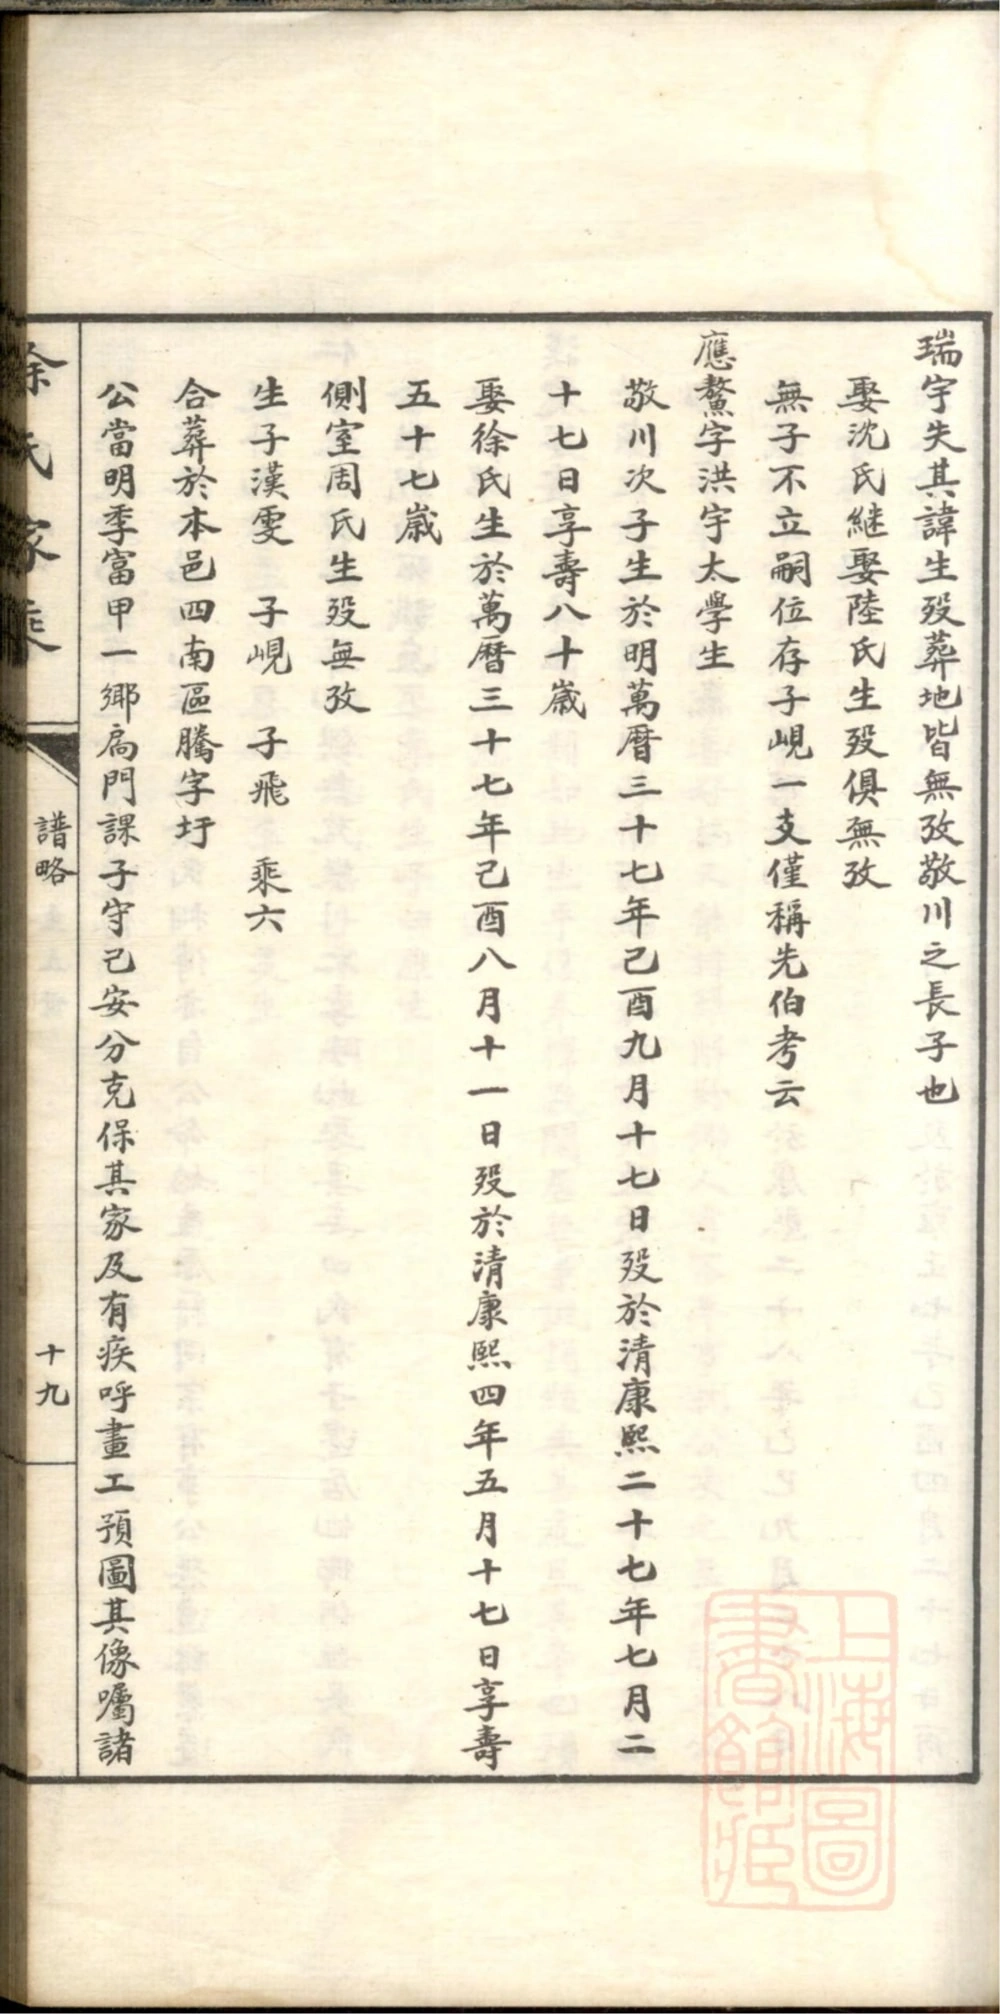 瑞宇失其諱生歿葬地皆無攷敬川之長子也
娶沈氏継娶陸氏生歿俱無攷
無子不立嗣位存子峴一支僅稱先伯考云
應鰲字洪宇太學生
敬川次子生於明萬曆三十七年己酉九月十七日歿於清康熙二十七年七月二
十七日享壽八十歲
娶徐氏生於萬曆三十七年己酉八月十一日歿於清康熙四年五月十七日享壽
五十七歲
側室周氏生歿無攷
生子漢雯 子峴 子飛 乘六
合葬於本邑四南區騰字圩
公當明季富甲一鄉扃門課子守己安分克保其家及有疾呼畫工預圖其像囑諸
徐氏家乘
譜略
十九
上海圖
書館藏